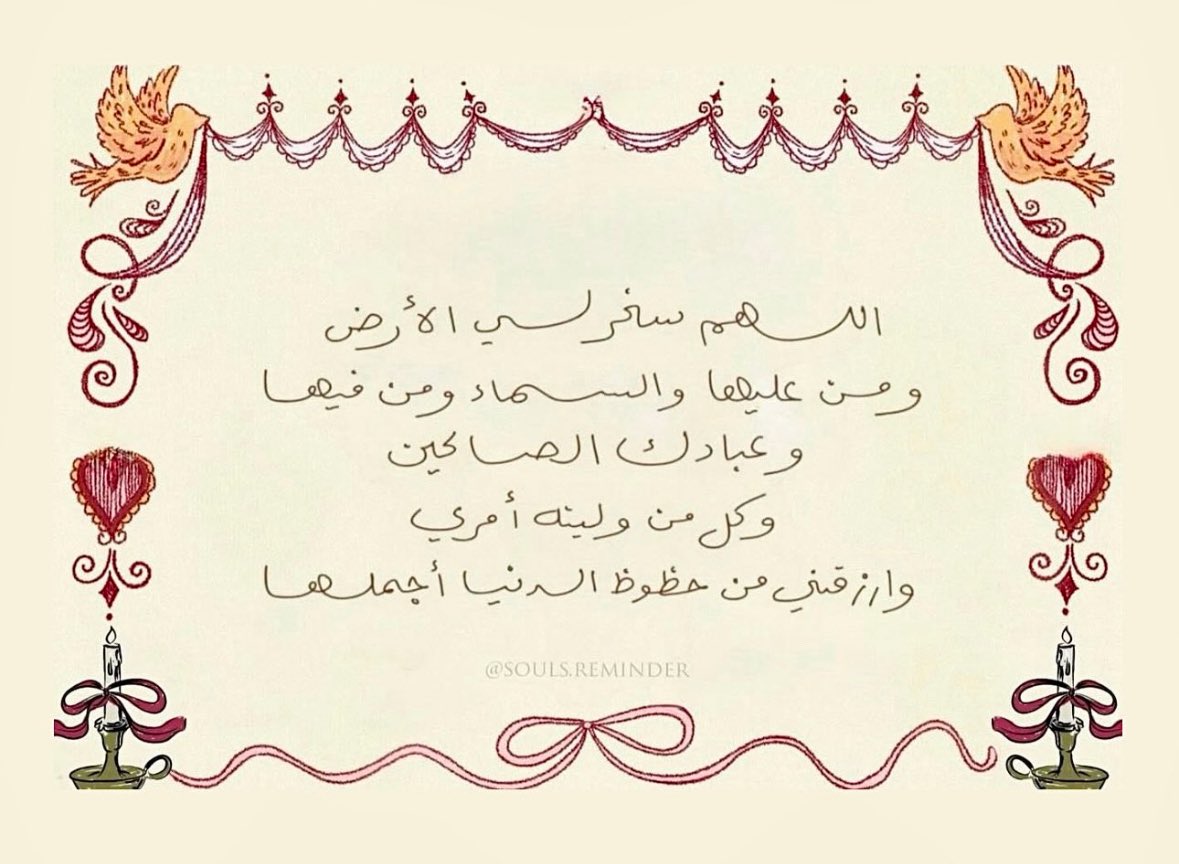 اللهم سخر لي الأرض
ومن عليها والسماء ومن فيها
وعبادك الصالحين
وكل من وليته أمري
وارزقني من حظوظ الدنيا أجملها
@SOULS.REMINDER